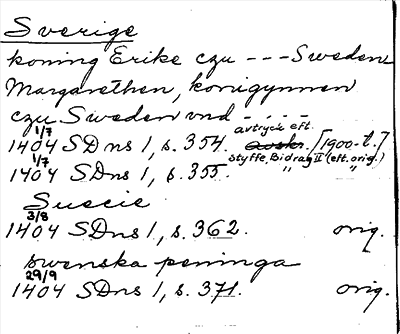 Sverige
koning Erike czu --- Swedene
Margarethen, konigynnen
czu Sweden vnd - - - -
1/7 avtryck eft.
1404 SDns 1, s. 354. avskr. [1900-t.]
1/7 Styffe, Bidrag II (eft. orig.)
1404 SDns 1, s. 355. " "
Suecie
3/8
1404 SDns 1, s. 362. orig.
swenska peninga
29/9
1404 SDns 1, s. 371. orig.